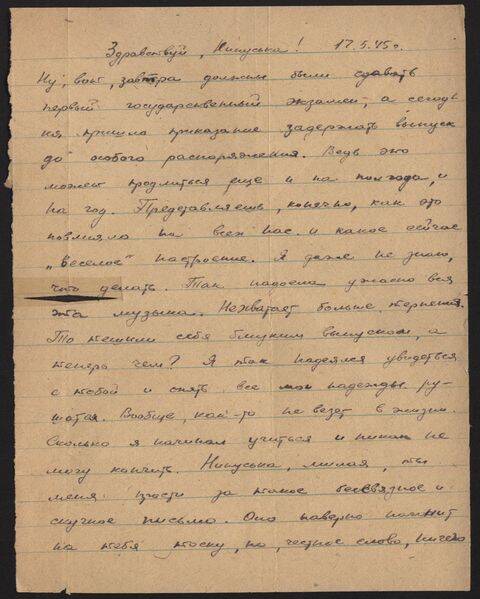 Здравствуй, Нинуська! 17.5.45 г.
Ну, вот, завтра должны были сдавать
первый государственный экзамен, а сегод-
ня пришло приказание задержать выпуск
до особого распоряжения. Ведь это
может продлиться еще и на полгода, и
на год. Представляешь, конечно, как это
повлияло на всех нас и какое сейчас
„веселое" настроение. Я даже не знаю,
что делать. Так надоела ужасно вся
эта музыка. Нехватает больше терпения.
То тешили себя близким выпуском, а
теперь чем? Я так надеялся увидеться
с тобой и опять все мои надежды ру-
шатся. Вообще, как-то не везет в жизни.
Сколько я начинал учиться и никак не
могу кончить. Нинуська, милая, ты
меня прости за такое бессвязное и
скучное письмо. Оно наверно нагонит
на тебя тоску, но, честное слово, ничего